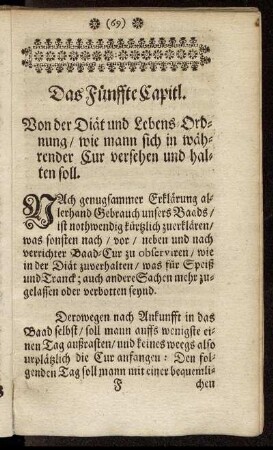 (69)
Das Fünffte Capitl.
Von der Diät und Lebens-Ord-
nung / wie mann sich in wäh-
render Cur versehen und hal-
ten soll.
NAch genugsammer Erklärung al-
lerhand Gebrauch unsers Baads /
ist nothwendig kürtzlich zuerklären /
was sonsten nach / vor / neben und nach
verrichter Baad-Cur zu observiren / wie
in der Diät zuverhalten / was für Speiß
und Tranck; auch andere Sachen mehr zu-
gelassen oder verbotten seynd.
Derowegen nach Ankunfft in das
Baad selbst / soll mann auffs wenigste ei-
nen Tag außrasten / und keines weegs also
urplätzlich die Cur anfangen: Den fol-
genden Tag soll mann mit einer bequemli-
F chen